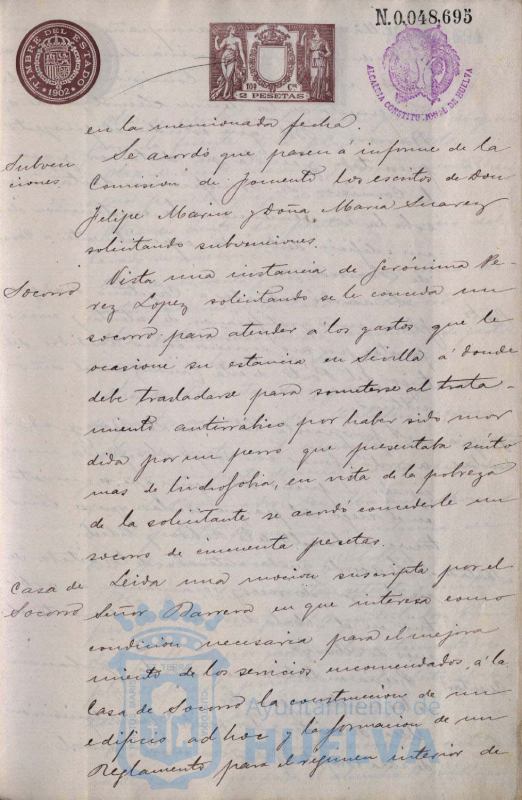 TIMBRE DEL ESTADO
1902
10ª Cª
2 PESETAS
N.0,048,695
ALCALDIA CONSTITUCIONAL DE HUELVA
en la mencionada fecha.
Subven
ciones
Se acordó que pasen á informe de la
Comisión de Fomento los escritos de Don
Felipe Marin y Doña Maria Suarez
solicitando subvenciones.
Socorro
Vista una instancia de Gerónima Pe-
rez Lopez solicitando se le conceda un
socorro para atender á los gastos que le
ocasione su estancia en Sevilla á donde
debe trasladarse para someterse al trata-
miento antirrabico por haber sido mor
dida por un perro que presentaba sinto
mas de hidrofobia, en vista de la pobreza
de la solicitante se acordó concederle un
socorro de cincuenta pesetas.
Casa de
Socorro
Leida una mocion suscripta por el
Señor Barrera en que interesa como
condicion necesaria para el mejora
miento de los servicios encomendados á la
Casa de Socorro la construccion de un
edificio ad hoc y la formacion de un
Reglamento para el regimen interior de
Ayuntamiento de
HUELVA